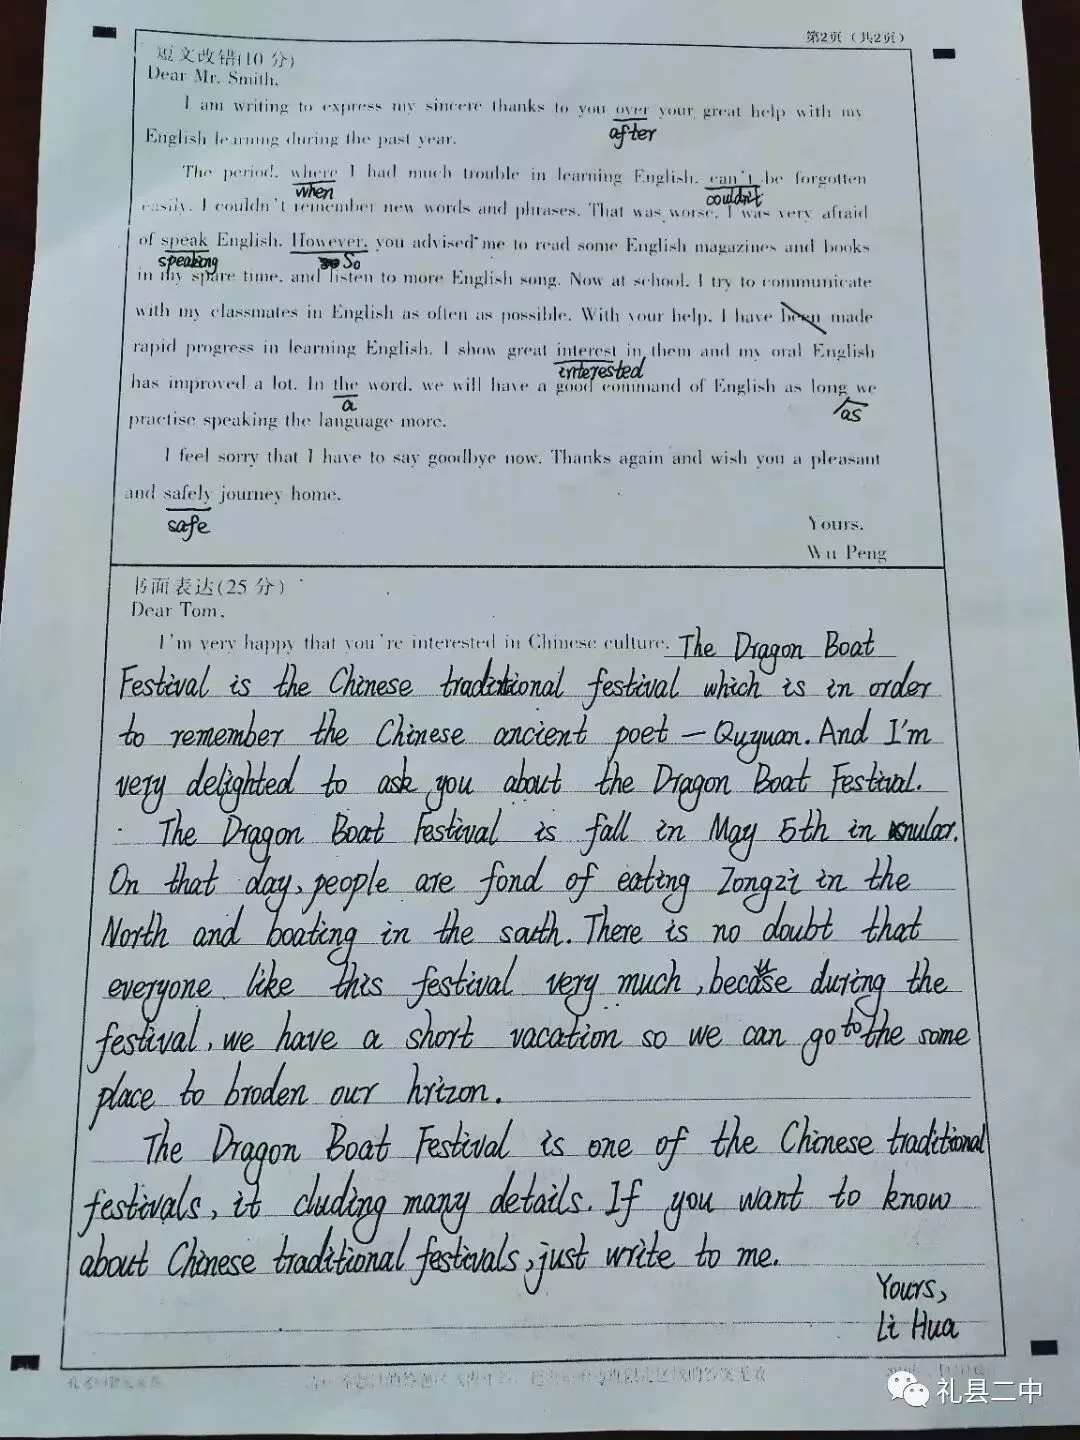 第2页（共2页）
短文改错(10分)
Dear Mr. Smith,
I am writing to express my sincere thanks to you over your great help with my
after
English learning during the past year.
The period, where I had much trouble in learning English, can't be forgotten
when couldn't
easily. I couldn't remember new words and phrases. That was worse, I was very afraid
of speak English. However, you advised me to read some English magazines and books
speaking So
in my spare time, and listen to more English song. Now at school, I try to communicate
with my classmates in English as often as possible. With your help, I have been made
rapid progress in learning English. I show great interest in them and my oral English
interested
has improved a lot. In the word, we will have a good command of English as long we
a as
practise speaking the language more.
I feel sorry that I have to say goodbye now. Thanks again and wish you a pleasant
and safely journey home.
safe
Yours,
Wu Peng
书面表达(25分)
Dear Tom,
I'm very happy that you're interested in Chinese culture. The Dragon Boat
Festival is the Chinese traditional festival which is in order
to remember the Chinese ancient poet — Quyuan. And I'm
very delighted to ask you about the Dragon Boat Festival.
The Dragon Boat Festival is fall in May 5th in
On that day, people are fond of eating Zongzi in the
North and boating in the south. There is no doubt that
everyone like this festival very much, because during the
festival, we have a short vacation so we can go to the some
place to broden our hrizon.
The Dragon Boat Festival is one of the Chinese traditional
festivals, it cluding many details. If you want to know
about Chinese traditional festivals, just write to me.
Yours,
Li Hua
礼县二中